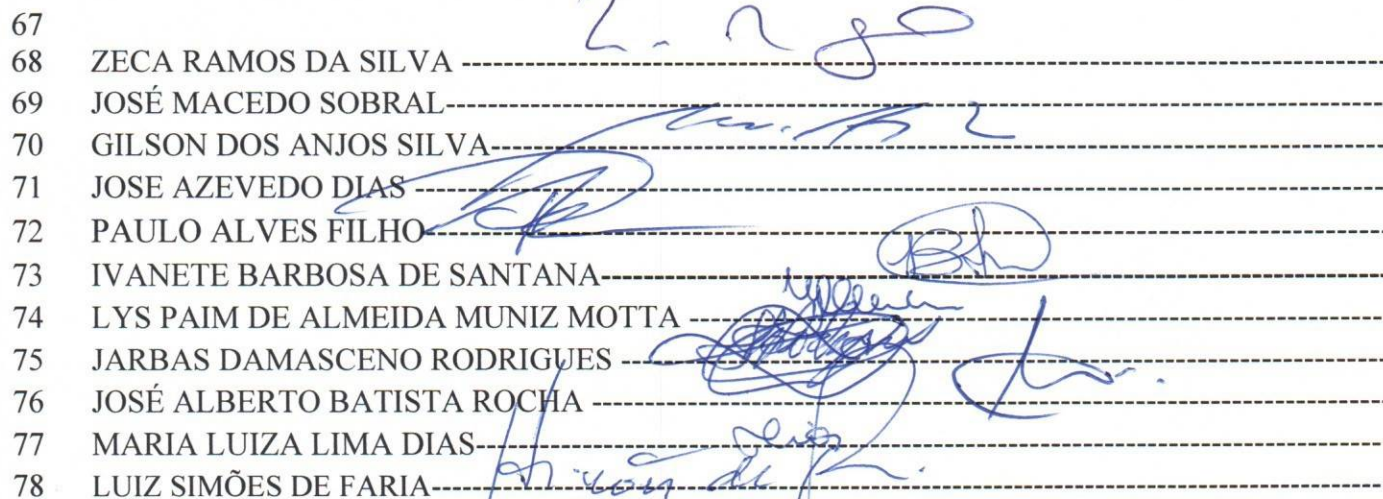 67
68 ZECA RAMOS DA SILVA --------------------
69 JOSÉ MACEDO SOBRAL--------------------
70 GILSON DOS ANJOS SILVA--------------------
71 JOSE AZEVEDO DIAS --------------------
72 PAULO ALVES FILHO--------------------
73 IVANETE BARBOSA DE SANTANA--------------------
74 LYS PAIM DE ALMEIDA MUNIZ MOTTA --------------------
75 JARBAS DAMASCENO RODRIGUES --------------------
76 JOSÉ ALBERTO BATISTA ROCHA --------------------
77 MARIA LUIZA LIMA DIAS--------------------
78 LUIZ SIMÕES DE FARIA--------------------